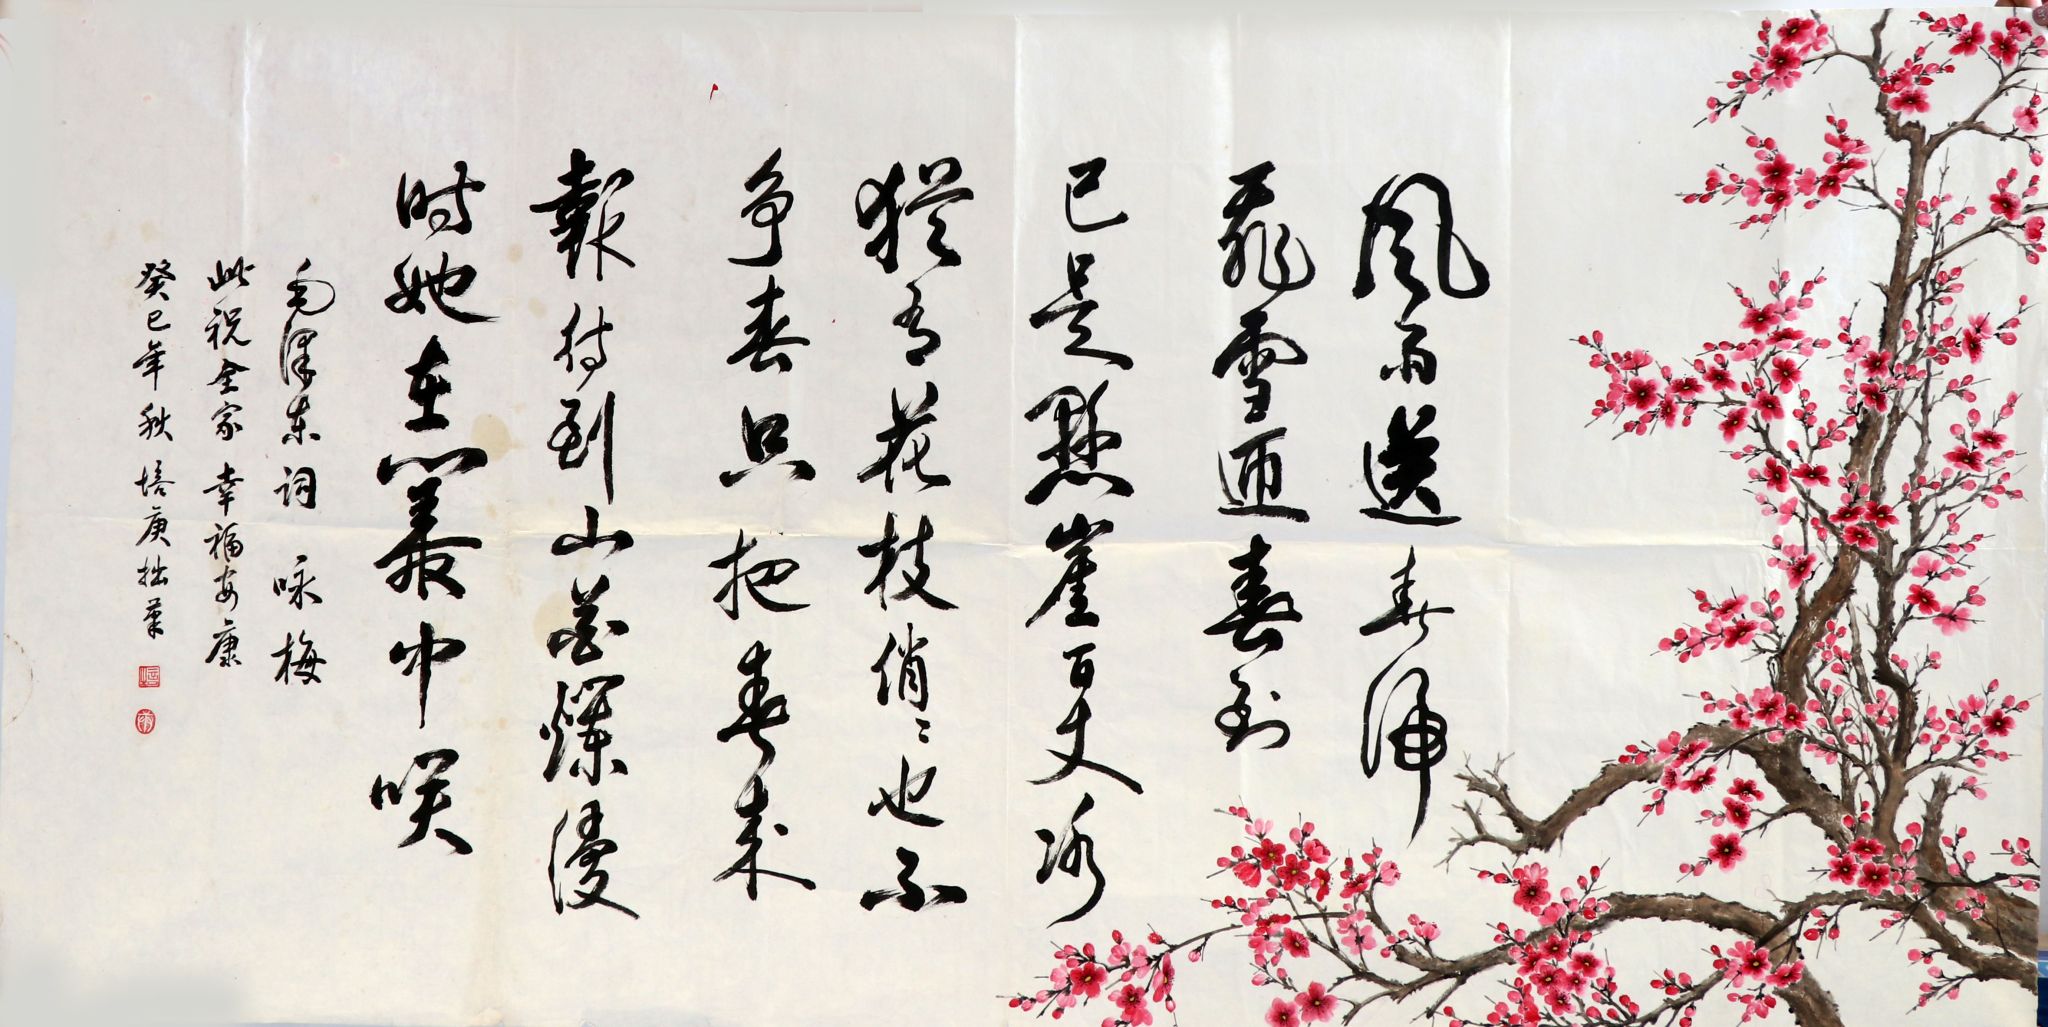 风雨送春归
飛雪迎春到
已是懸崖百丈冰
犹有花枝俏〻也不
争春只把春来
報待到山花爛漫
时她在叢中咲
毛泽东词 咏梅
此祝全家幸福安康
癸巳年秋培庚拙笔